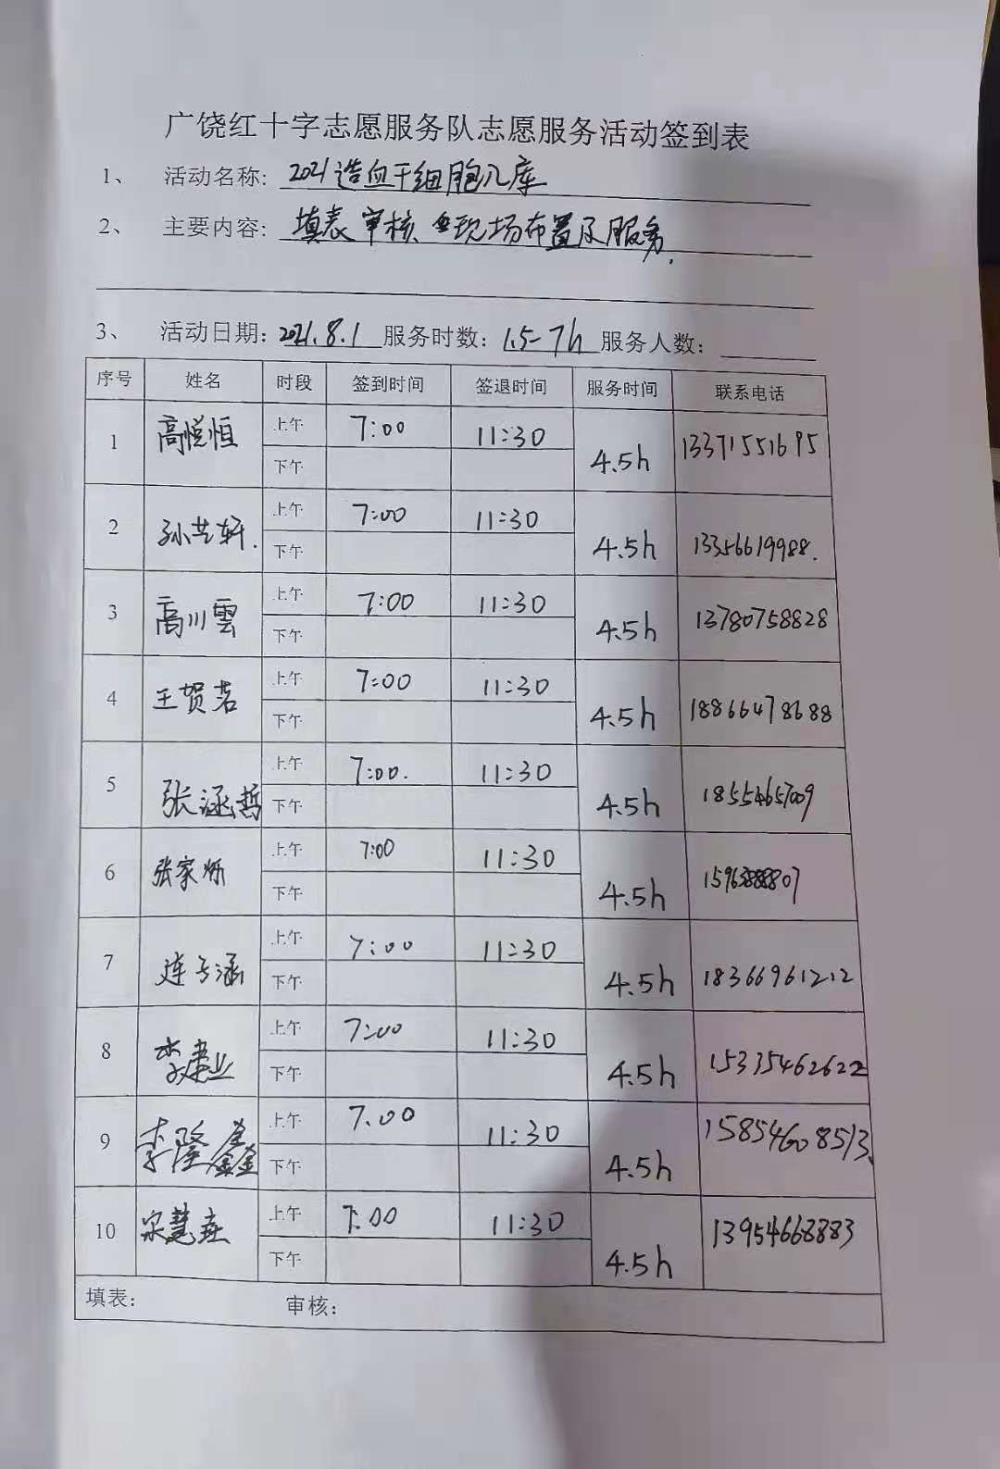 广饶红十字志愿服务队志愿服务活动签到表
1、 活动名称: 2021造血干细胞入库
2、 主要内容: 填表审核、现场布置及服务.
3、 活动日期: 2021.8.1 服务时数: 1.5-7h 服务人数:
序号 姓名 时段 签到时间 签退时间 服务时间 联系电话
1 高悦恒 上午 7:00 11:30 4.5h 13371551695
下午
2 孙芸轩. 上午 7:00 11:30 4.5h 13356619988.
下午
3 高川雲 上午 7:00 11:30 4.5h 13780758828
下午
4 王贺茗 上午 7:00 11:30 4.5h 18866478688
下午
5 张涵哲 上午 7:00. 11:30 4.5h 18554657009
下午
6 张家烁 上午 7:00 11:30 4.5h
下午
7 连子涵 上午 7:00 11:30 4.5h 18366961212
下午
8 李建业 上午 7:00 11:30 4.5h 15335462622
下午
9 李隆鑫 上午 7.00 11:30 4.5h 15854608513
下午
10 宋慧 上午 7.00 11:30 4.5h 13954668883
下午
填表: 审核: